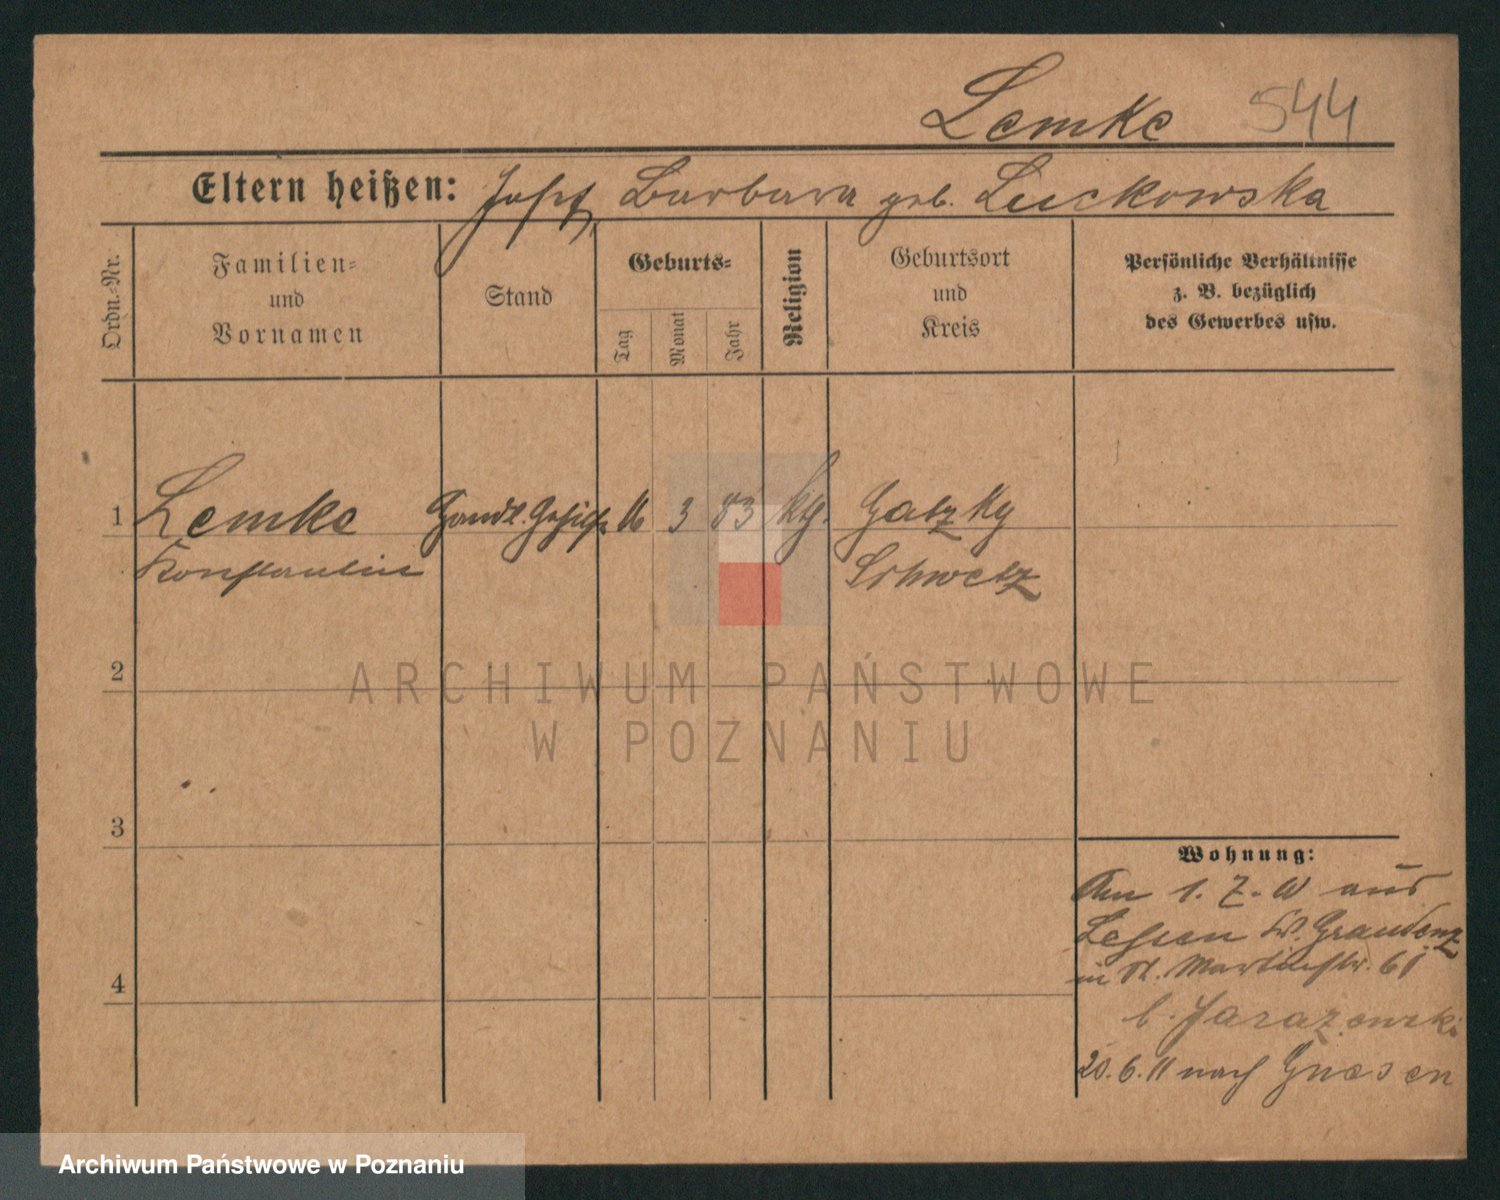 Lemke 544
Eltern heißen: Josef, Barbara geb. Luckowska
Ordn.-Nr.
Familien-
und
Vornamen
Stand
Geburts-
Tag
Monat
Jahr
Religion
Geburtsort
und
Kreis
Persönliche Verhältnisse
z. B. bezüglich
des Gewerbes usw.
1 Lemke 3 83 kg.
Konstantin Schwetz
2
3
4
Wohnung:
Am 1. aus
Lessen Kr. Graudenz
in St. Martinstr. 61
b. Jarazewski
20.6.11 nach Gnesen
ARCHIWUM PAŃSTWOWE
W POZNANIU
Archiwum Państwowe w Poznaniu